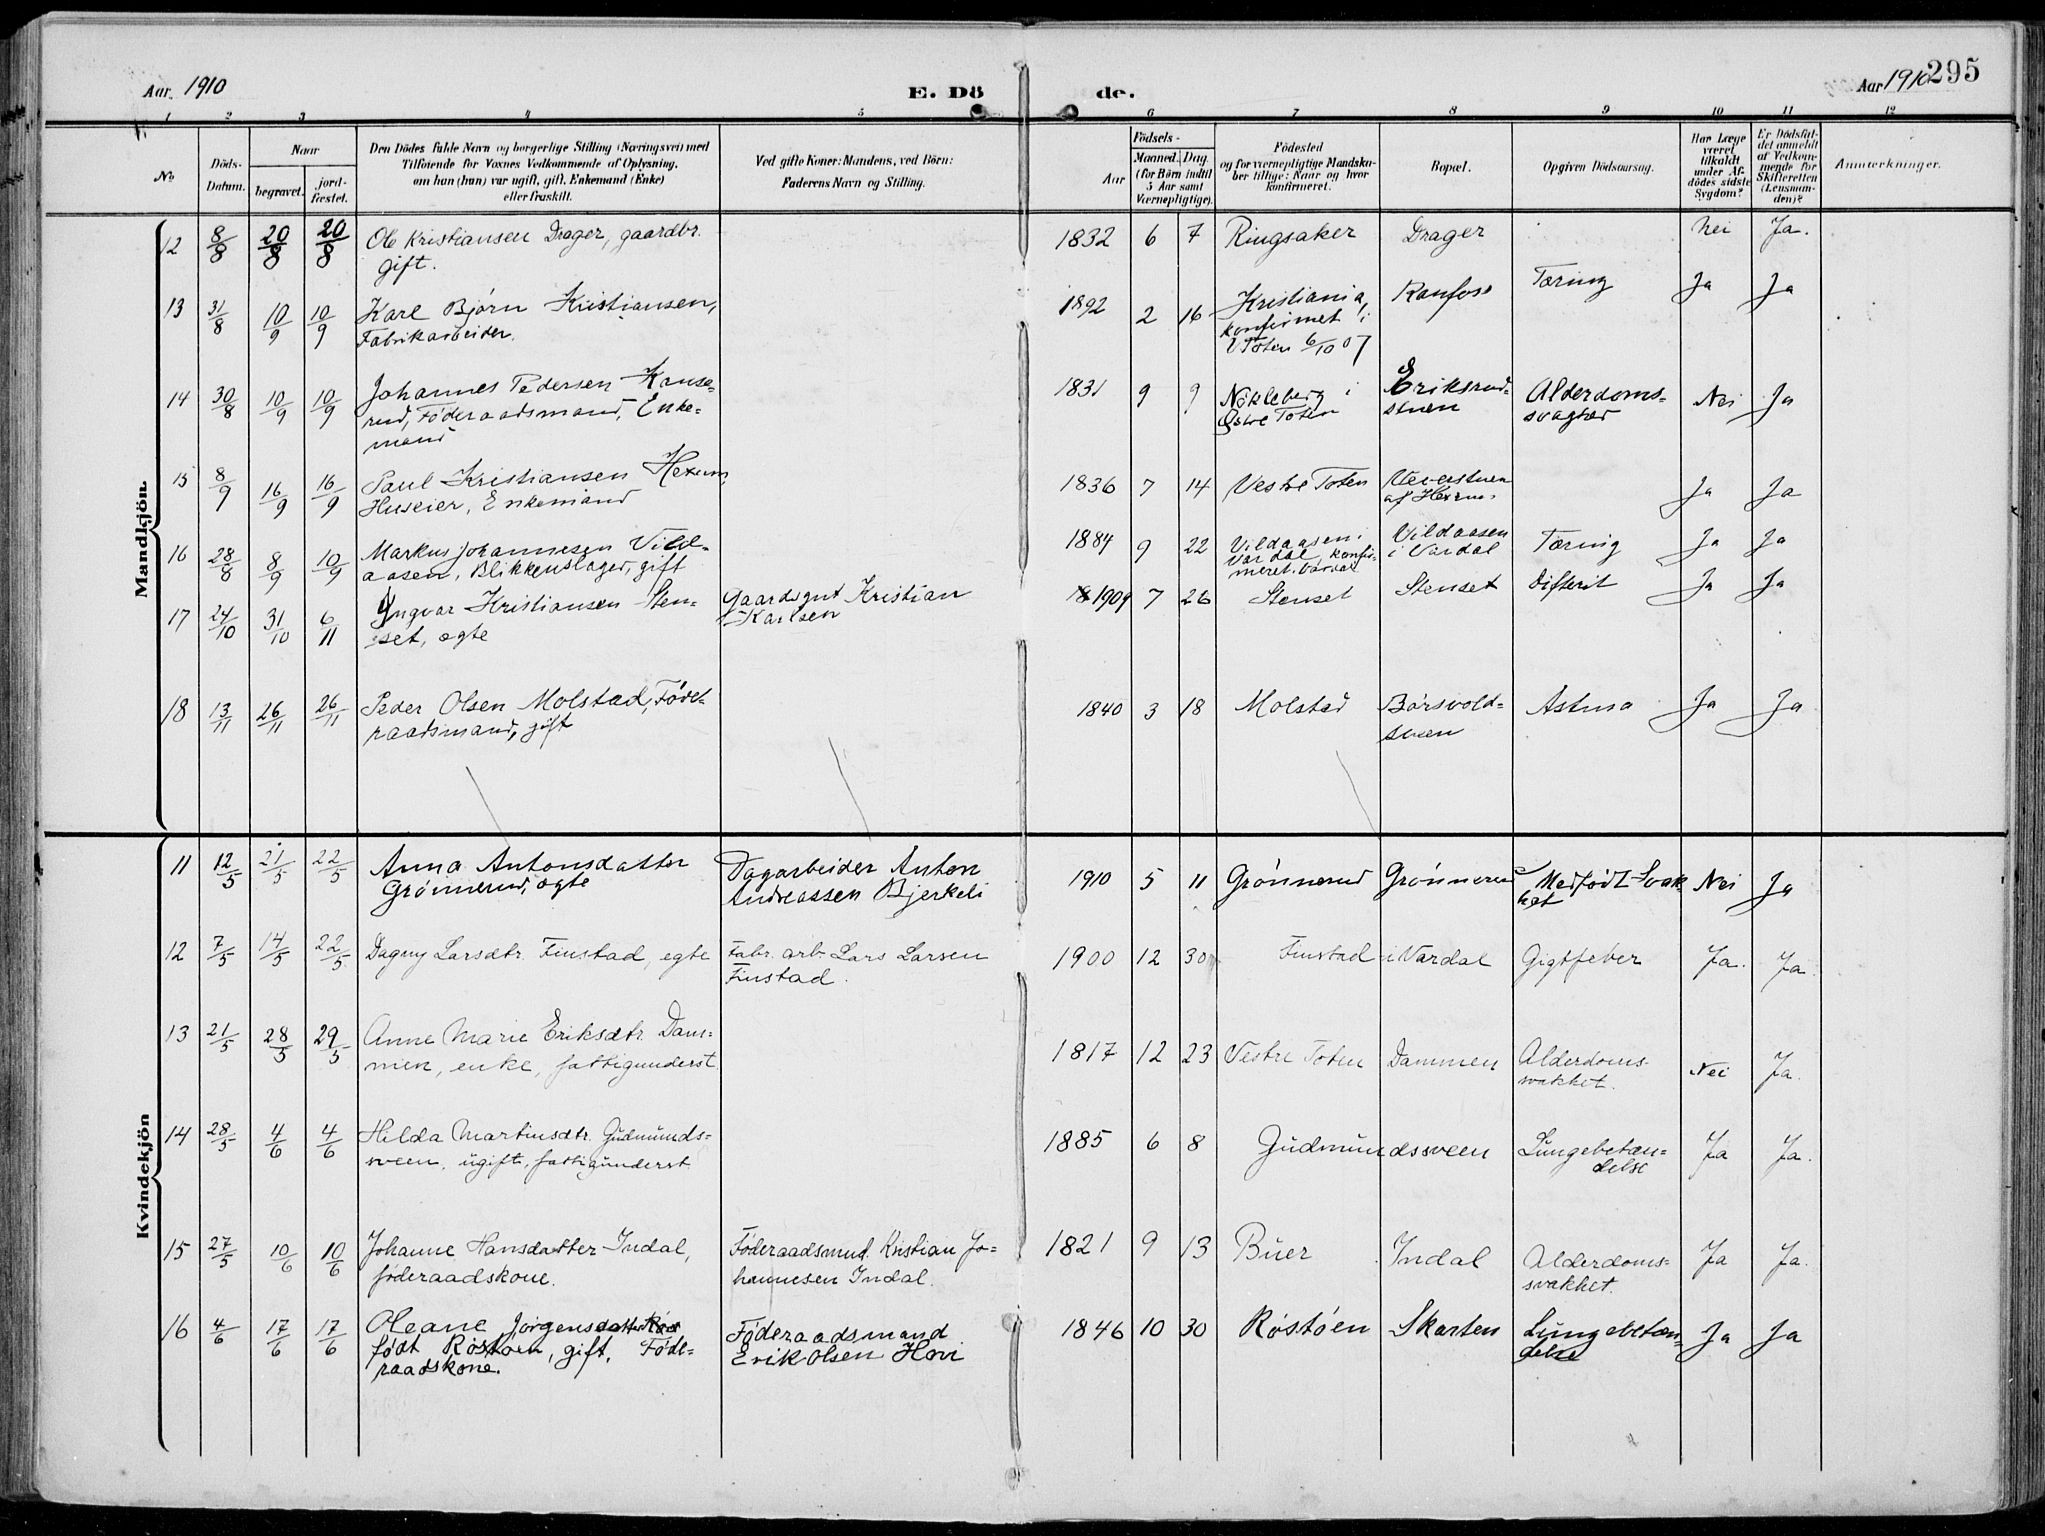 Aar. 1910
E. Dö
de.
Aar 1910 295
1 2 3 4 5 6 7 8 9 10 11 12
No
Döds-
Datum.
Naar
begravet.
jord-
fæstet.
Den Dödes fulde Navn og borgerlige Stilling (Næringsvei) med
Tilföiende for Voxnes Vedkommende af Oplysning,
om han (hun) var ugift, gift, Enkemand (Enke)
eller fraskilt.
Ved gifte Koner: Mandens, ved Börn:
Faderens Navn og Stilling.
Födsels-
Aar
Maaned. Dag.
(for Börn indtil
5 Aar samt
Værnepligtige).
Födested
og for værnepligtige Mandska-
ber tillige: Naar og hvor
konfirmeret.
Bopæl.
Opgiven Dödsaarsag.
Har Læge
været
tilkaldt
under Af-
dödes sidste
Sygdom?
Er Dödsfal-
det anmeldt
af Vedkom-
mende for
Skifteretten
(Lensman-
den)?
Anmærkninger.
Mandkjön.
12 8/8 20/8 20/8 Ole Kristiansen Drager, gaardbr. 1832 6 7 Ringsaker Drager Nei Ja.
gift.
13 31/8 10/9 10/9 Karl Bjørn Kristiansen, 1892 2 16 Kristiania, Raufoss Tæring Ja Ja
Fabrikarbeider. konfirmet i
V Toten 6/10 07
14 30/8 10/9 10/9 Johannes Pedersen Kanse- 1831 9 9 Nökleberg i Eriksrud- Alderdoms- Nei Ja
rud, Föderaadsmand, Enke- Østre Toten stuen
mand
15 8/9 16/9 16/9 Paul Kristiansen Hexum, 1836 7 14 Vestre Toten Veverstuen Ja Ja
Huseier, Enkemand af Hexum.
16 28/8 8/9 10/9 Markus Johannesen Vild- 1884 9 22 Vildaasen i Vildaasen Tæring Ja Ja
aasen, Blikkenslager, gift Vardal, konfir- i Vardal
meret. Vardal
17 24/10 31/10 6/11 Yngvar Kristiansen Sten- Gaardsgut Kristian 1909 7 26 Stenset Stenset Difterit Ja Ja
set, ægte Karlsen
18 13/11 26/11 26/11 Peder Olsen Molstad, Föde- 1840 3 18 Molstad Börsvold- Astma Ja Ja
raadsmand, gift stuen
Kvindekjön
11 12/5 21/5 22/5 Anna Antonsdatter Dagarbeider Anton 1910 5 11 Grönnerud Grönnerud Medfödt Svak- Nei Ja
Grönnerud, ægte Andreassen Bjerkeli het
12 7/5 14/5 22/5 Dagny Larsdtr. Finstad, egte Fabr. arb. Lars Larsen 1900 12 30 Finstad i Vardal Gigtfeber Ja. Ja
Finstad.
13 21/5 28/5 29/5 Anne Marie Eriksdtr. Dam- 1817 12 23 Vestre Toten Dammen Alderdoms- Nei Ja.
men, enke, fattigunderst. svakhet.
14 28/5 4/6 4/6 Hilda Martinsdtr. Gudmunds- 1885 6 8 Gudmundssveen Lungebetæn- Ja Ja.
sveen, ugift, fattigunderst. delse
15 27/5 10/6 10/6 Johanne Hansdatter Indal, Föderaadsmd. Kristian Jo- 1821 9 13 Buer Indal Alderdoms- Ja Ja.
föderaadskone. hannesen Indal. svakhet.
16 4/6 17/6 17/6 Oleane Jörgensdatter Föderaadsmand 1846 10 30 Röstöen Skarten Lungebetæn- Ja Ja
födt Röstöen, gift. Föde- Erik Olsen Hovi delse
raadskone.